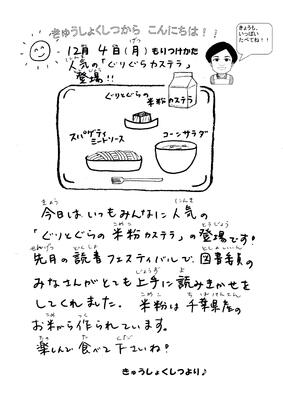 きゅうしょくしつから こんにちは！！
きょうも、
いっぱい
たべてね！！
12月 4日(月) もりつけかた
人気の「ぐりぐらカステラ」
登場!!
ぐりとぐらの
米粉カステラ
スパゲティ
ミートソース
コーンサラダ
今日はいつもみんなに人気の
「ぐりとぐらの米粉カステラ」の登場です！
先月の読書フェスティバルで、図書委員の
みなさんがとても上手に読みきかせを
してくれました。米粉は千葉県産の
お米から作られています。
楽しんで食べて下さいね！
きゅうしょくしつより♪